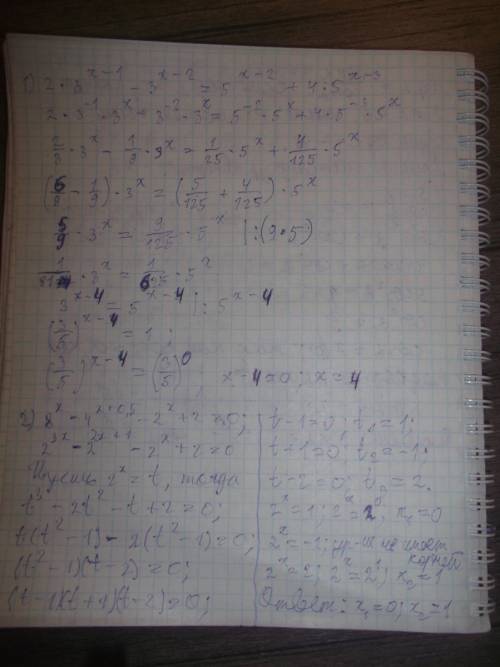 1) 2·3^(x-1) - 3^(x-2) = 5^(x-2) + 4·5^(x-3)
2·3^(-1)·3^x - 3^(-2)·3^x = 5^(-2)·5^x + 4·5^(-3)·5^x
2/3·3^x - 1/9·3^x = 1/25·5^x + 4/125·5^x
(6/9 - 1/9)·3^x = (5/125 + 4/125)·5^x
5/9·3^x = 9/125·5^x |:(9·5)
1/81·3^x = 1/625·5^x
3^(x-4) = 5^(x-4) |:5^(x-4)
(3/5)^(x-4) = 1;
(3/5)^(x-4) = (3/5)^0, x-4=0; x=4
2) 8^x - 4^(x+0,5) - 2^x + 2 = 0;
2^(3x) - 2^(2x+1) - 2^x + 2 = 0
Пусть 2^x = t, тогда
t^3 - 2t^2 - t + 2 = 0;
t(t^2 - 1) - 2(t^2 - 1) = 0;
(t^2 - 1)(t - 2) = 0;
(t - 1)(t + 1)(t - 2) = 0;
t-1=0; t₁=1;
t+1=0; t₂=-1;
t-2=0; t₃=2.
2^x=1; 2^x=2^0; x₁=0
2^x=-1; ур-ие не имеет
корней
2^x=2; 2^x=2^1; x₂=1
Ответ: x₁=0; x₂=1